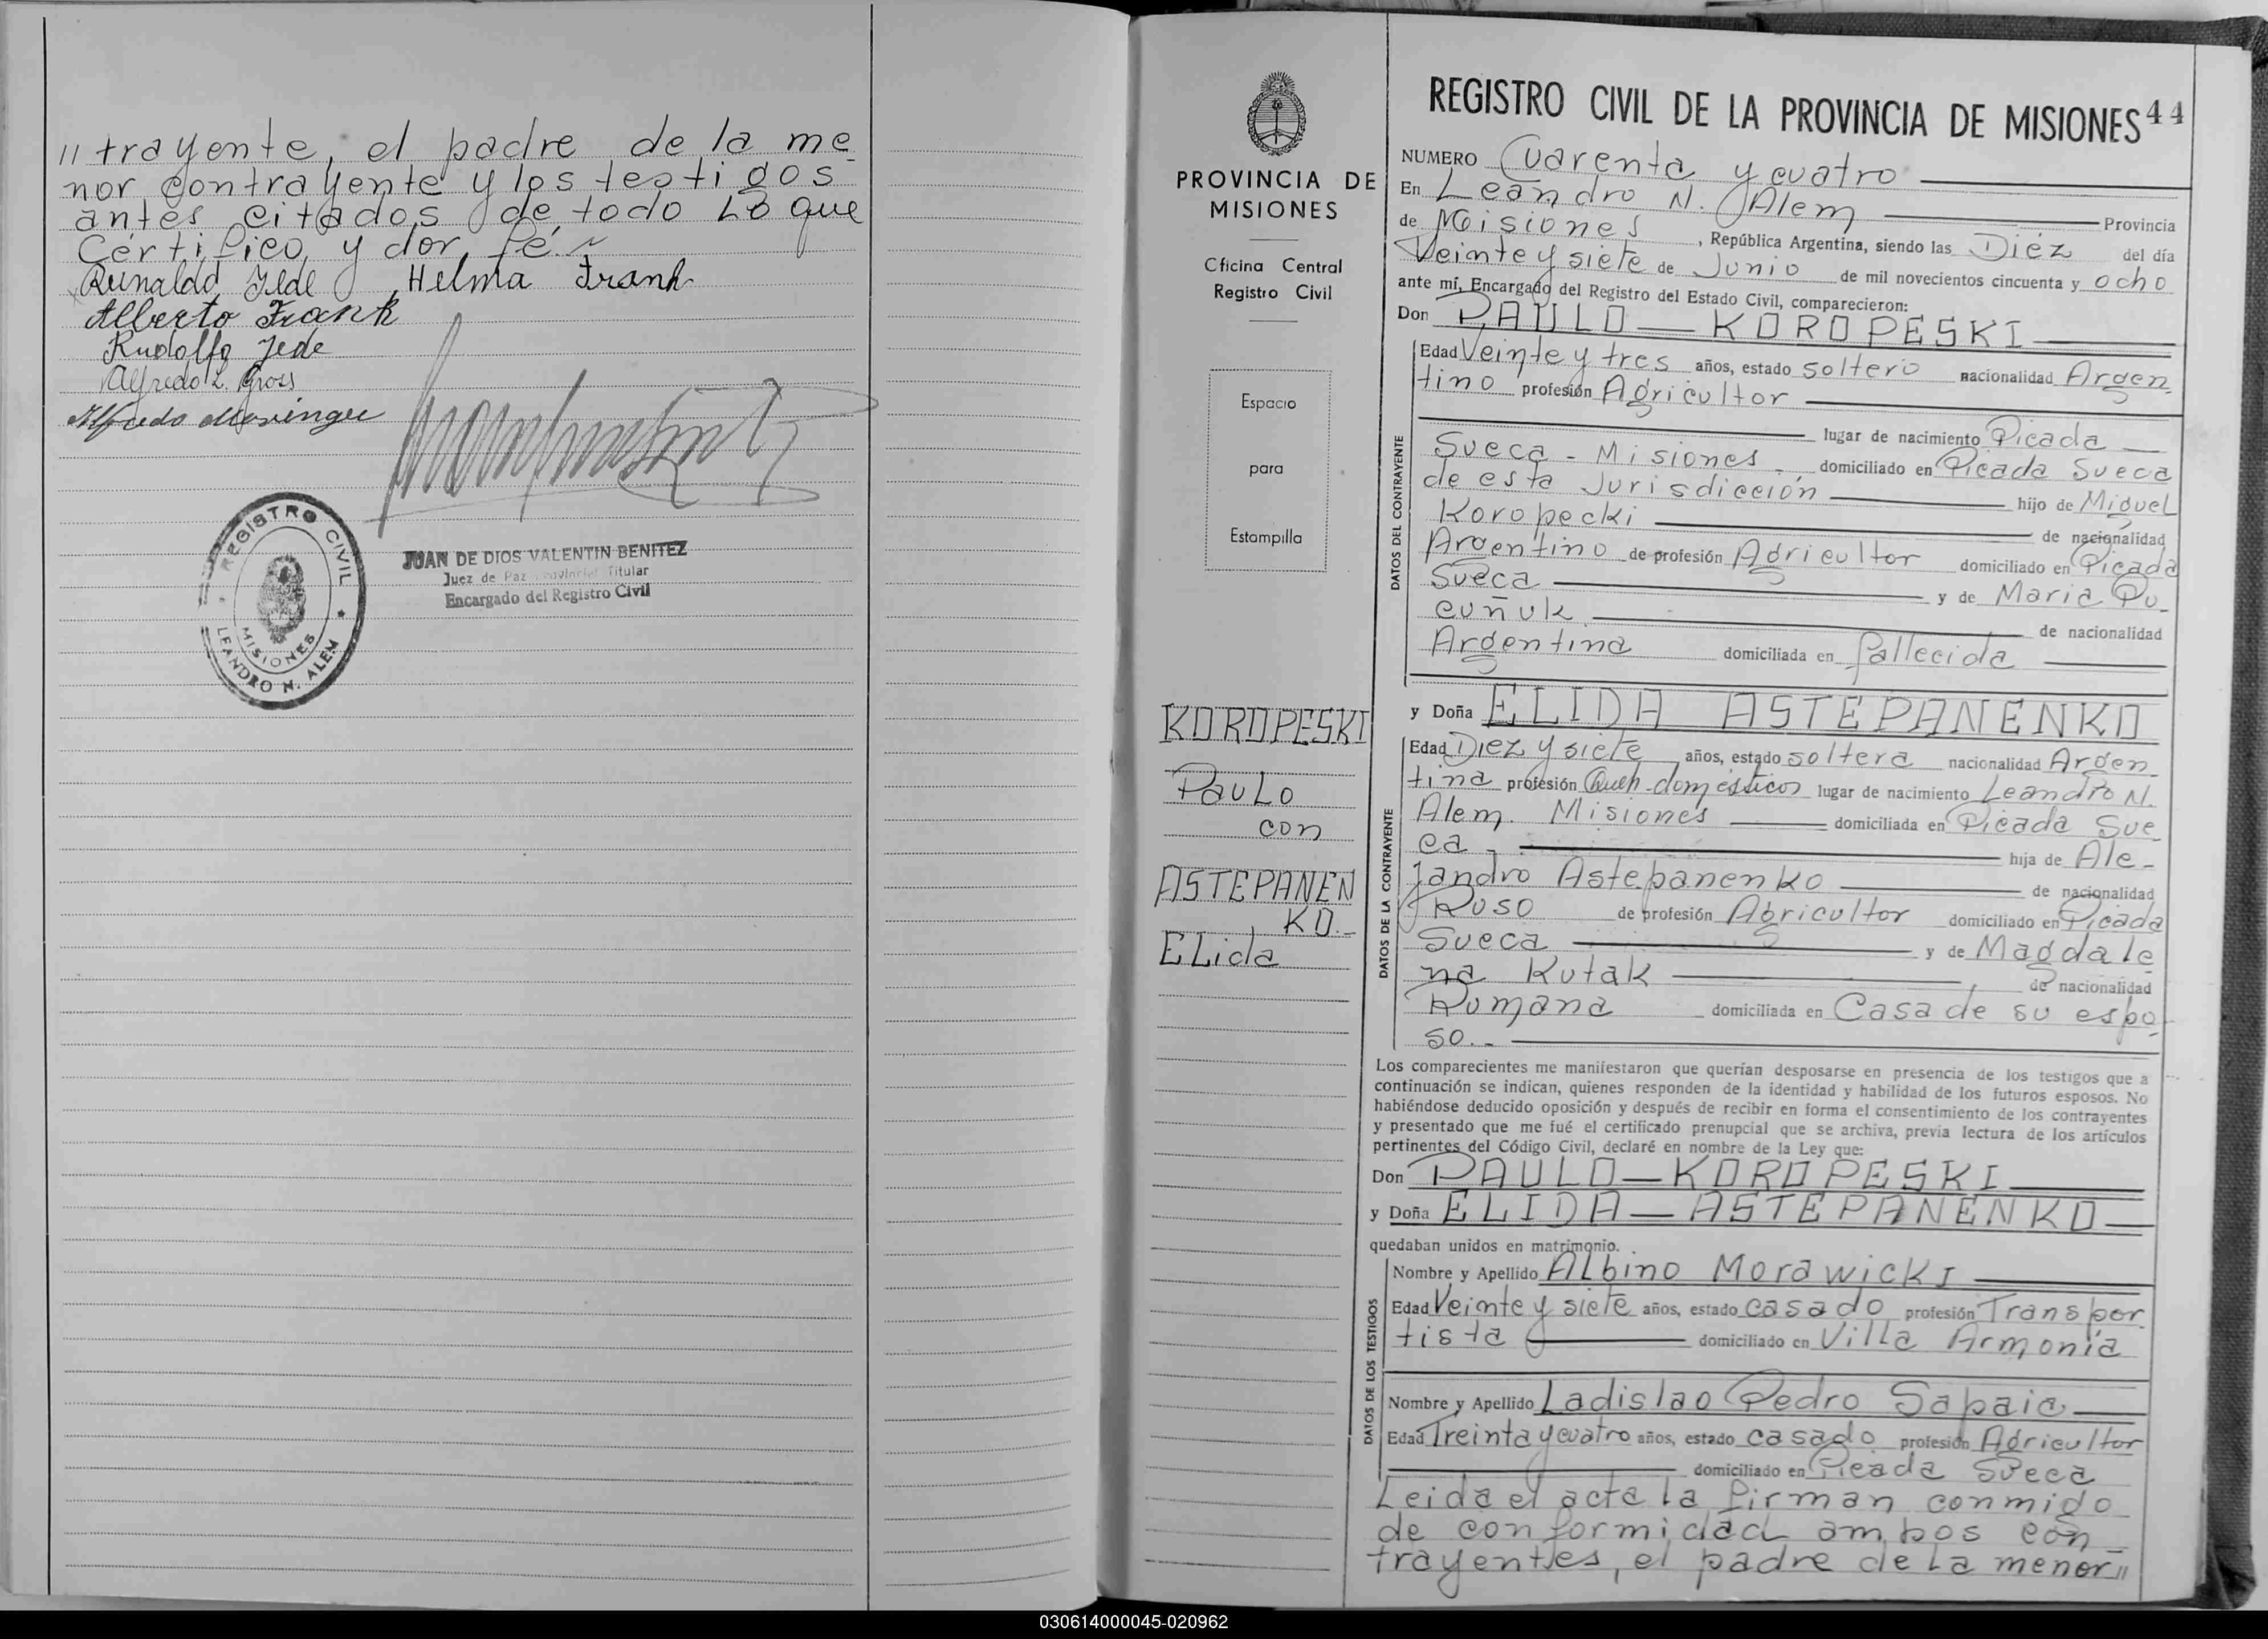 // trayente, el padre de la me
nor contrayente y los testigos
antes citados de todo lo que
Certifico y doy fé.-
Reinaldo Jede Helma Frank
Alberto Frank
Rudolfo Jede
Alfredo L. Gross
Alfredo
REGISTRO CIVIL
MISIONES
LEANDRO N. ALEM
JUAN DE DIOS VALENTIN BENITEZ
Juez de Paz Provincial Titular
Encargado del Registro Civil
PROVINCIA DE
MISIONES
Oficina Central
Registro Civil
Espacio
para
Estampilla
KOROPESKI
Paulo
con
ASTEPANEN
KO.-
Elida
REGISTRO CIVIL DE LA PROVINCIA DE MISIONES 44
NUMERO Cuarenta y cuatro
En Leandro N. Alem Provincia
de Misiones, República Argentina, siendo las Diéz del día
Veinte y siete de Junio de mil novecientos cincuenta y ocho
ante mí, Encargado del Registro del Estado Civil, comparecieron:
Don PAULO — KOROPESKI
DATOS DEL CONTRAYENTE
Edad Veinte y tres años, estado soltero nacionalidad Argen
tino profesión Agricultor
lugar de nacimiento Picada
Sueca - Misiones. domiciliado en Picada Sueca
de esta Jurisdicción hijo de Miguel
Koropecki de nacionalidad
Argentino de profesión Agricultor domiciliado en Picada
Sueca y de Maria Pu-
cuñuk de nacionalidad
Argentina domiciliada en fallecida
y Doña ELIDA ASTEPANENKO
DATOS DE LA CONTRAYENTE
Edad Diez y siete años, estado soltera nacionalidad Argen
tina profesión Queh. domésticos lugar de nacimiento Leandro N.
Alem. Misiones domiciliada en Picada Sue
ca - hija de Ale-
jandro Astepanenko de nacionalidad
Ruso de profesión Agricultor domiciliado en Picada
Sueca y de Magdale
na Kutak de nacionalidad
Rumana domiciliada en Casa de su espo
so.-
Los comparecientes me manifestaron que querían desposarse en presencia de los testigos que a
continuación se indican, quienes responden de la identidad y habilidad de los futuros esposos. No
habiéndose deducido oposición y después de recibir en forma el consentimiento de los contrayentes
y presentado que me fué el certificado prenupcial que se archiva, previa lectura de los artículos
pertinentes del Código Civil, declaré en nombre de la Ley que:
Don PAULO — KOROPESKI
y Doña ELIDA — ASTEPANENKO
quedaban unidos en matrimonio.
DATOS DE LOS TESTIGOS
Nombre y Apellido Albino Morawicki
Edad Veinte y siete años, estado casado profesión Transpor
tista domiciliado en Villa Armonía
Nombre y Apellido Ladislao Pedro Sapaic
Edad Treinta y cuatro años, estado casado profesión Agricultor
domiciliado en Picada Sueca
Leida el acta la firman conmigo
de conformidad ambos con-
trayentes, el padre de la menor //
030614000045-020962